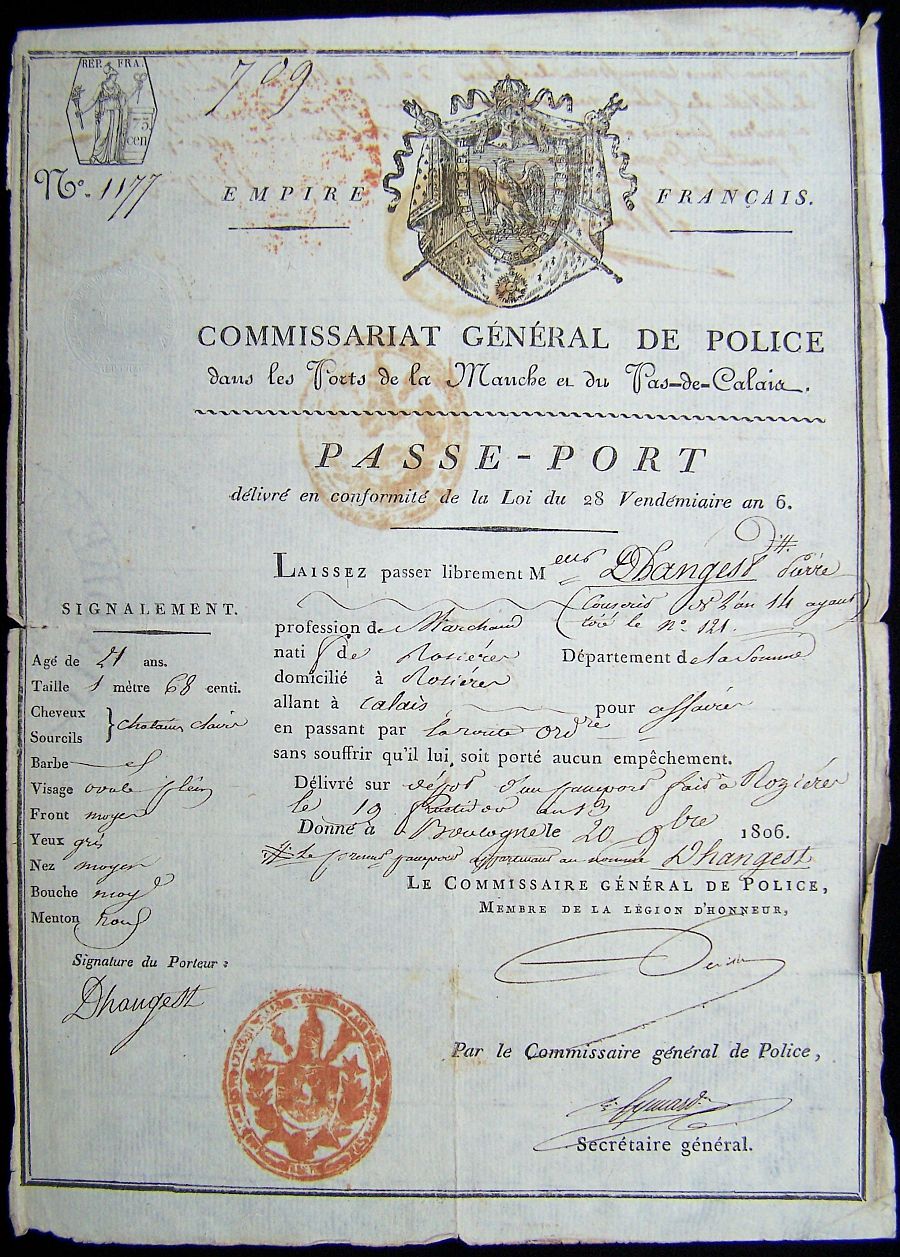 REP. FRA.
75
cen
709
N.º 1177
EMPIRE FRANÇAIS.
COMMISSARIAT GÉNÉRAL DE POLICE
dans les Ports de la Manche et du Pas-de-Calais.
PASSE-PORT
délivré en conformité de la Loi du 28 Vendémiaire an 6.
LAISSEZ passer librement M eur Dhangest Pierre
(Conscrit de l'an 14 ayant
profession de Marchand tiré le nº 121.
natif de Rosiéres Département de la Somme
domicilié à Rosiéres
allant à Calais pour affaires
en passant par la route ordre
sans souffrir qu'il lui soit porté aucun empêchement.
Délivré sur dépot d'un passeport fait à Roziéres
le 19 fructidor an 13
Donné à Boulogne le 20 9bre 1806.
Le présent passeport appartenant au nommé Dhangest
LE COMMISSAIRE GÉNÉRAL DE POLICE,
MEMBRE DE LA LÉGION D'HONNEUR,
Par le Commissaire général de Police,
Secrétaire général.
SIGNALEMENT.
Agé de 21 ans.
Taille 1 mètre 68 centi.
Cheveux
Sourcils } chatains clairs
Barbe
Visage ovale plein
Front moyen
Yeux gris
Nez moyen
Bouche moy
Menton rond
Signature du Porteur :
Dhangest